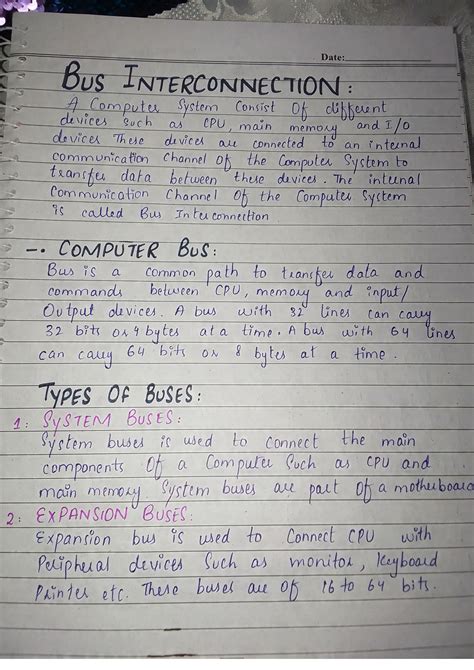 Date:
BUS INTERCONNECTION:
A Computer System Consist Of different
devices such as CPU, main memory and I/O
devices These devices are connected to an internal
communication Channel Of the Computer System to
transfer data between these devices. The internal
Communication Channel Of the Computer System
is called Bus Interconnection
-. COMPUTER BUS:
Bus is a common path to transfer data and
commands between CPU, memory and input/
Output devices. A bus with 32 lines can carry
32 bits or 4 bytes at a time. A bus with 64 lines
can carry 64 bits or 8 bytes at a time.
TYPES OF BUSES:
1: SYSTEM BUSES:
System buses is used to connect the main
components Of a Computer Such as CPU and
main memory. System buses are part Of a motherboard
2: EXPANSION BUSES:
Expansion bus is used to Connect CPU with
Peripheral devices Such as monitor, Keyboard
Printer etc. These buses are Of 16 to 64 bits.